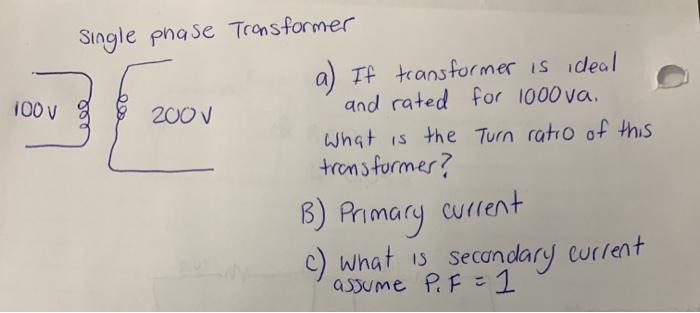 Single phase Transformer
a) If transformer is ideal
and rated for 1000va.
100V
200V
What is the Turn ratio of this
transformer?
B) Primary current
c) What is secondary current
assume P.F = 1